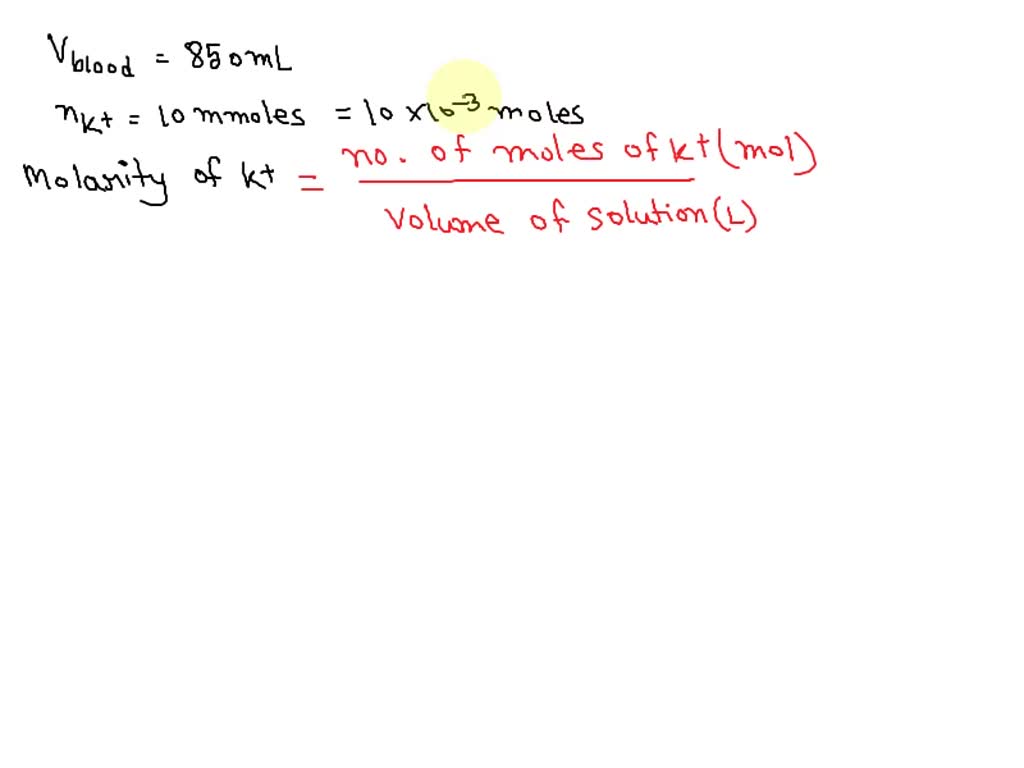 V blood = 850mL
nK+ = 10 mmoles = 10 x10-3 moles
Molarity of K+ = no. of moles of K+ (mol)
Volume of solution (L)